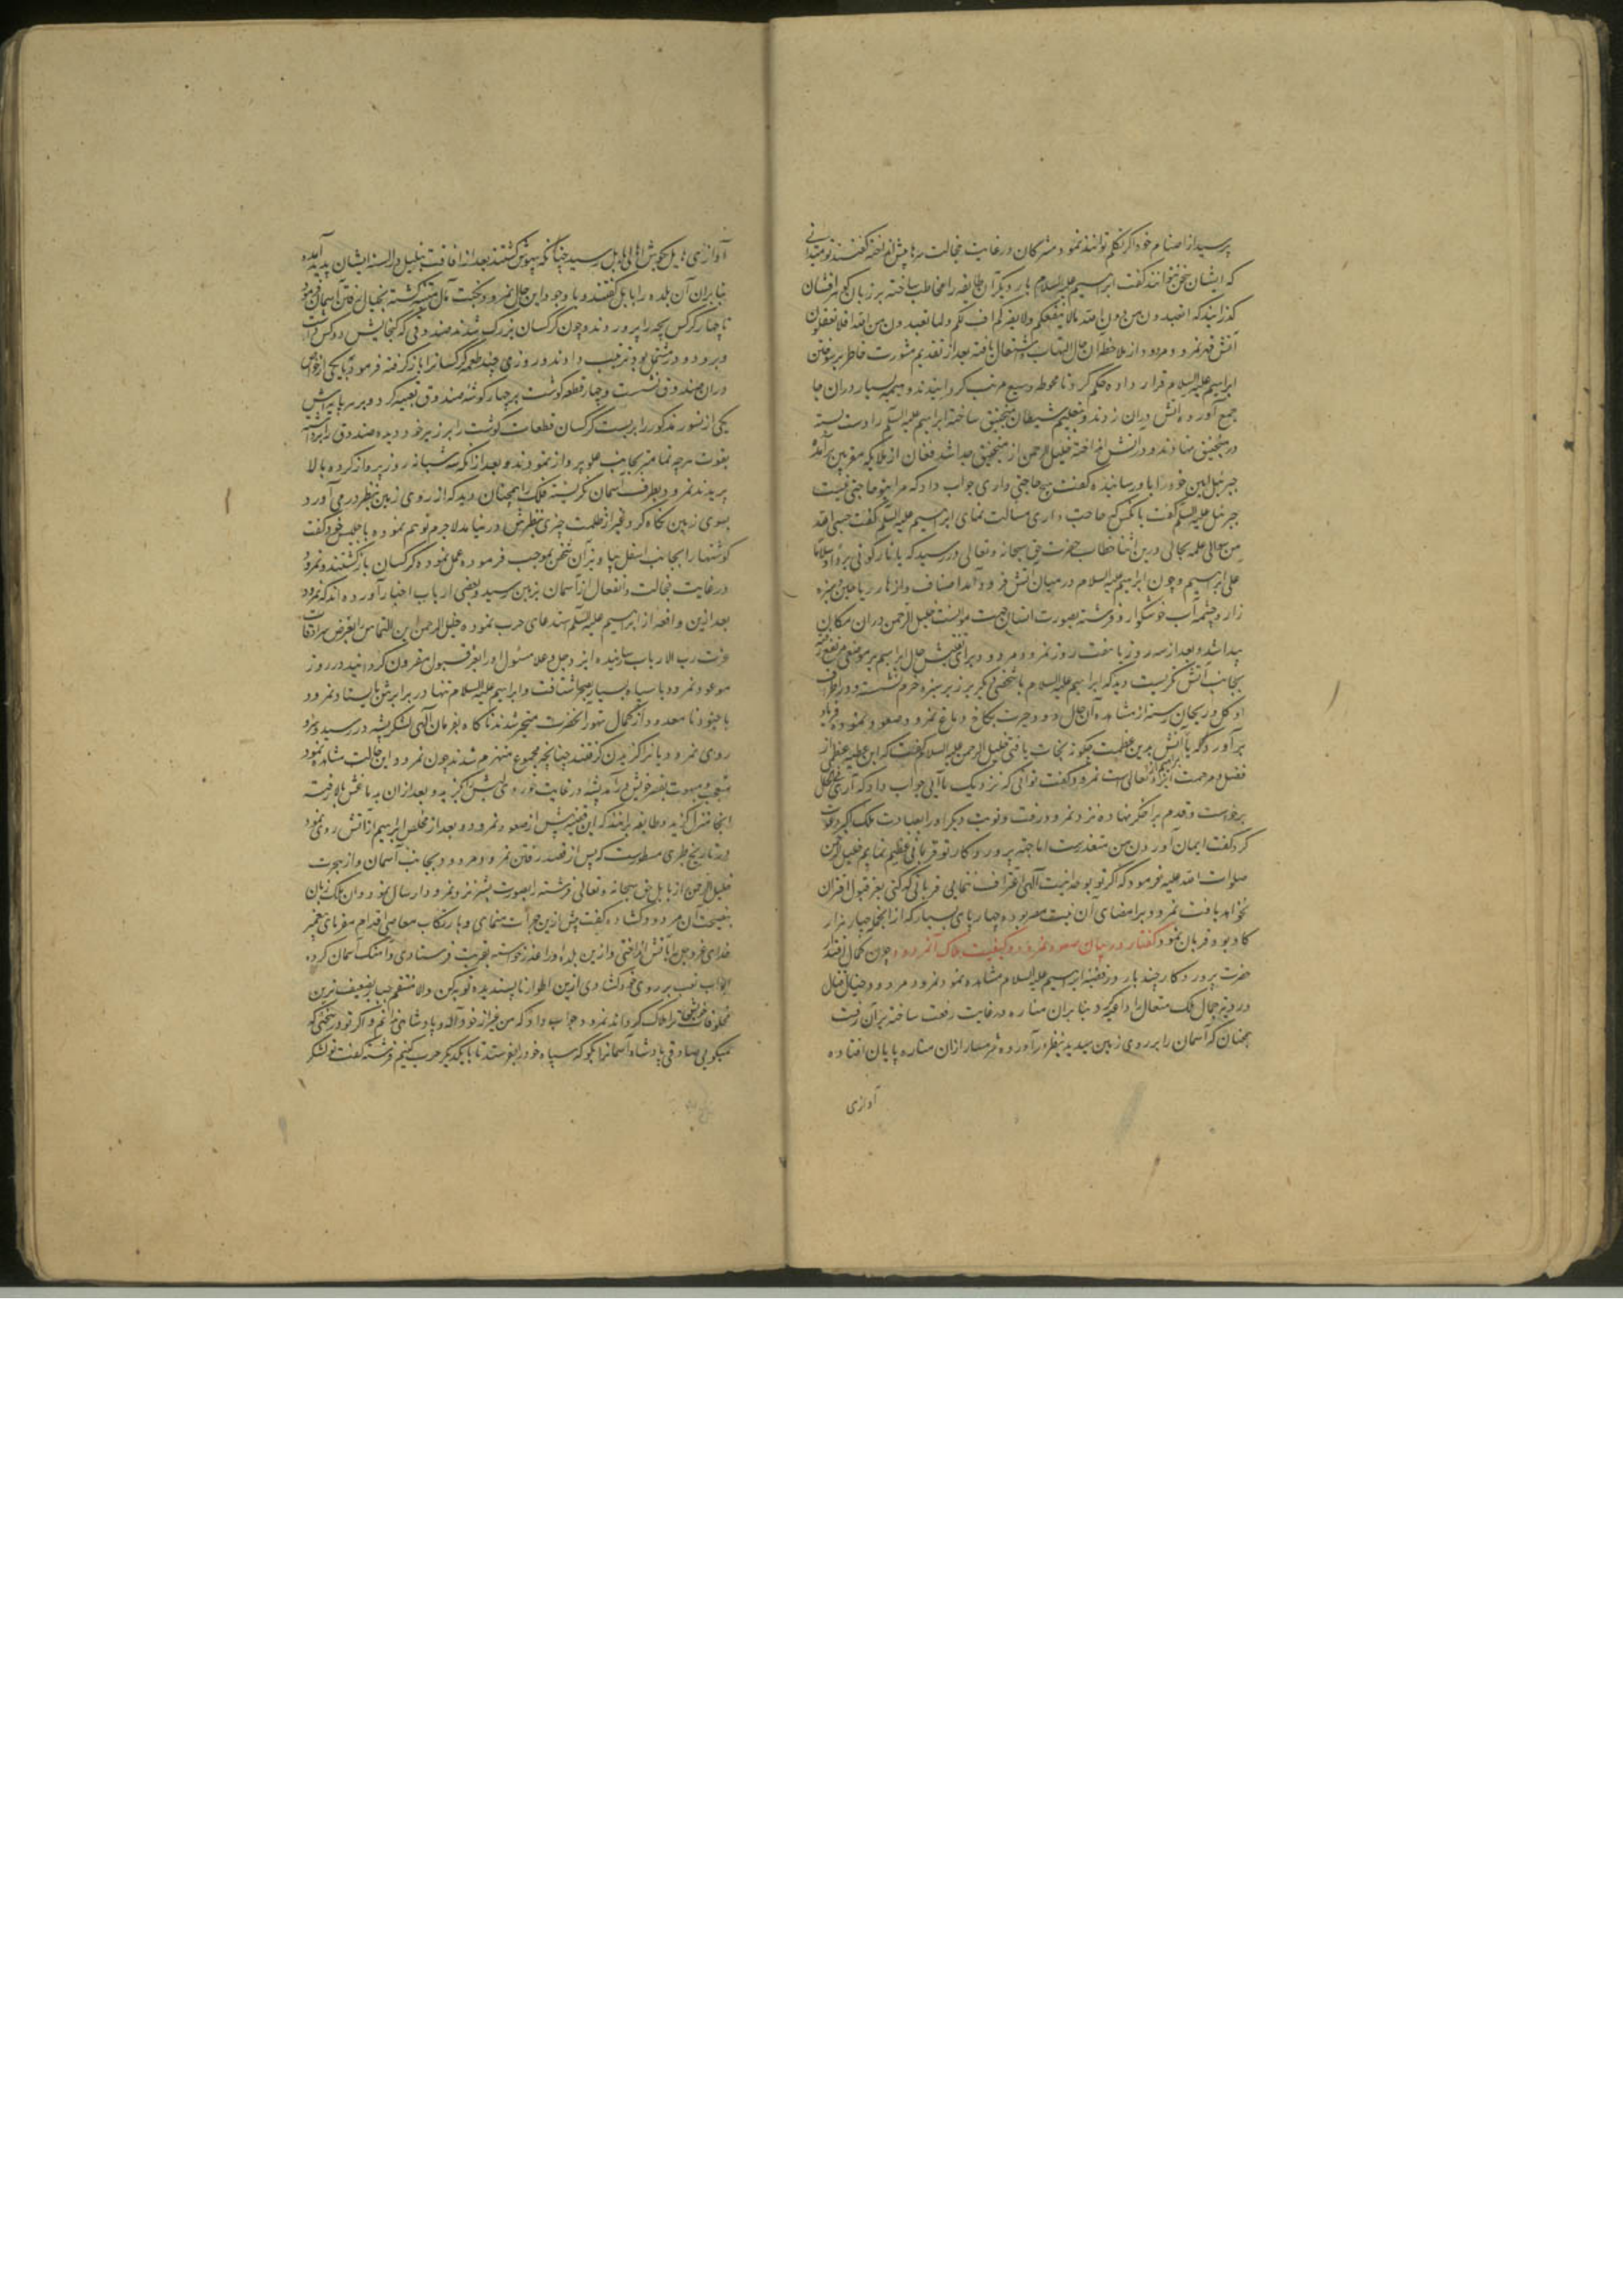 پرسید از اصنام خود اگر تکلم توانند نمود مشرکان در غایت خجالت سرها پیش انداخته گفتند تو میدانی
که ایشان سخن نتوانند گفت ابراهیم علیه السلام بار دیگر آن طایفه را مخاطب ساخته بر زبان
گذرانید که افتعبدون من دون الله مالا ینفعکم ولا یضرکم اف لکم ولما تعبدون من دون الله افلا تعقلون
آتش قهر نمرود مردود از ملاحظه آن حال التهاب و اشتعال یافته بعد از تقدیم مشورت خاطر بر سوختن
ابراهیم علیه السلام قرار داده حکم کرد تا محوطه وسیع مرتب کردانیدند و هیمه بسیار دران جا
جمع آورده آتش دران زدند و بتعلیم شیطان منجنیق ساخته ابراهیم علیه السلام را دست بسته
در منجنیق نهادند و در آتش انداختند خلیل الرحمن از منجنیق جدا شد فغان از ملایکه مقربین برآمد
جبرئیل امین خود را باو رسانیده گفت هیچ حاجتی داری جواب داد که مرا بتو حاجتی نیست
جبرئیل علیه السلام گفت بآنکس که حاجت داری مسالت نمای ابراهیم علیه السلام گفت حسبی الله
من سوالی علمه بحالی درین اثنا خطاب حضرت حق سبحانه و تعالی در رسید که یا نار کونی بردا و سلاما
علی ابراهیم و چون ابراهیم علیه السلام در میان آتش فرود آمد اصناف و ازهار ریاحین سبزه
زار و چشمه آب خوشکوار و فرشته بصورت انسان جهت موانست خلیل الرحمن دران مکان
پیدا شد و بعد از سه روز یا هفت روز نمرود مردود برای تفتیش حال ابراهیم بر موضعی مرتفع
بجانب آتش نکریست دید که ابراهیم علیه السلام با شخصی دیکر بر زبر سبزه خرم نشسته و در اطراف
او کل و ریحان رسته از مشاهده آن حال دود حیرت بکاخ دماغ نمرود صعود نموده فریاد
برآورد که یا ابراهیم از آتش بدین عظمت چکونه نجات یافتی خلیل الرحمن علیه السلام گفت که این عطیه عظمی از
فضل و مرحمت ایزد تعالی است نمرود گفت توانی که نزدیک ما آیی جواب داد که آری
برخاست و قدم بر اخکر نهاده نزد نمرود رفت و نوبت دیکر او را بعبادت ملک اکبر دعوت
کرد گفت ایمان آوردن من متعذرست اما جهة پروردکار تو قربانی عظیم نمایم خلیل الرحمن
صلوات الله علیه فرمود که اکر تو بوحدانیت آلهی اعتراف ننمایی قربانی که کنی بعز قبول اقتران
نخواهد یافت نمرود بر امضای آن نیت مصر بوده چهارپای بسیار که از آنجمله چهار هزار
کاو بود قربان نمود کفتار در بیان صعود نمرود و کیفیت هلاک آن مردود چون کمال اقتدار
حضرت پروردکار چند بار در قضیه ابراهیم علیه السلام مشاهده نمود نمرود مردود خیال قتال
در ویترجمال ملک متعال را داعیه کرد بنابران مناره در غایت رفعت ساخته بر آن رفت
همچنان که آسمان را بر روی زمین میدید بنظر درآورده شرمسار ازان مناره پایان افتاده
آوازی
آوازی هایل بکوش اهالی بابل رسید چنانکه بیهوش کشتند بعد از افاقت تبلبل در السنه ایشان پدید آمده
بنابران آن بلده را بابل گفتند و با وجود این حال نمرود نکبت مآل متنبه نکشته بخیال رفتن آسمان فرمود
تا چهار کرکس بچه را پروردند و چون کرکسان بزرک شدند صندوقی که کنجایش دو کس داشت
و بر دو در مشتمل بود ترتیب دادند و روزی چند طعمه کرکسانرا باز کرفته فرمود تا با یکی از خواص
دران صندوق نشست و چهار قطعه کوشت بر چهار کوشه صندوق تعبیه کرد و بر سر پایه اش
یکی از نسور مذکور را بربست کرکسان قطعات کوشت را بر زبر خود دیده صندوق را برداشته
بقوت هر چه تمامتر بجانب علو پرواز نمودند و بعد از آنکه شبانه روز پرواز کرده بالا
پریدند نمرود بطرف آسمان نکریسته فلک را همچنان دید که از روی زمین بنظر درمی آورد
بسوی زمین نکاه کرد غیر از ظلمت چیزی بنظرش درنیامد لاجرم توهم نموده با جلیس خود گفت
کوشتها را بجانب اسفل بیاویز آن شخص بموجب فرموده عمل نموده کرکسان بازکشتند و نمرود
در غایت خجالت و انفعال از آسمان بزمین رسید و بعضی ارباب اخبار آورده اند که نمرود
بعد ازین واقعه از ابراهیم علیه السلام استدعای حرب نموده خلیل الرحمن این التماس را بعرض سرادقات
عزت رب الارباب رسانیده ایزد جل و علا مسئول او را بعز قبول مقرون کردانید در روز
موعود نمرود با سپاه بسیار بصحرا شتافت و ابراهیم علیه السلام تنها در برابرش بایستاد نمرود
با جنود نامعدود از کمال تهور آنحضرت متحیر شدند ناکاه بفرمان آلهی لشکر پشه در رسید
روی نمرودیانرا کزیدن کرفتند چنانچه مجموع منهزم شدند چون نمرود این حالت مشاهده نمود
متعجب و مبهوت بقصر خویش درآمد پشه در غایت خوردی لبش کزید و بعد ازان بدماغش بالا رفته
آنجا منزل کزید و طایفه برانند که این قضیه پیش از صعود نمرود و بعد از تخلص ابراهیم از آتش روی نمود
و در تاریخ طبری مسطورست که پس از قصد رفتن نمرود مردود بجانب آسمان و از هجرت
خلیل الرحمن از بابل حق سبحانه و تعالی فرشته را بصورت بشر نزد نمرود ارسال نمود و آن ملک زبان
بنصیحت آن مردود کشاده گفت پیش ازین جرأت منمای و بارتکاب معاصی اقدام مفرمای پیغمبر
خدای عز و جل را بآتش انداختی و ازین بلده او را عذر خواسته بغربت فرستادی و آهنک آسمان کرده
ابواب تعب بر روی خود کشادی ازین اطوار ناپسندیده توبه کن والا منتقم جبار بضعیف ترین
مخلوقات خویش ترا هلاک کرداند نمرود جواب داد که من غیر از خود آله و پادشاهی ندانم و اکر تو در سخنی که
میکویی صادقی پادشاه آسمانرا بکو که سپاه خود را بفرستد تا با یکدیکر حرب کنیم فرشته گفت تو لشکر